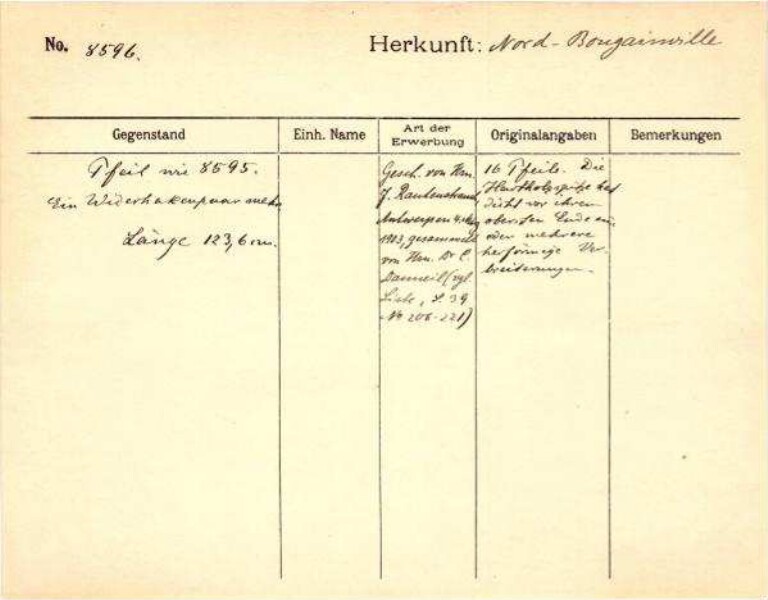 No. 8596.
Herkunft: Nord-Bougainville
Gegenstand
Einh. Name
Art der Erwerbung
Originalangaben
Bemerkungen
Pfeil wie 8595.
Ein Widerhakenpaar mehr
Länge 123,6 cm.
Gesch. von Hrn.
J. Rautenstrauch,
Antwerpen
1903, gesammelt
von Hrn. Dr C.
Danneil (vgl.
Liste, S. 39
No 206-221)
16 Pfeile. Die
Hartholzspitze hat
dicht vor ihrem
obersten Ende ein
oder mehrere
Ver-
breiterungen.